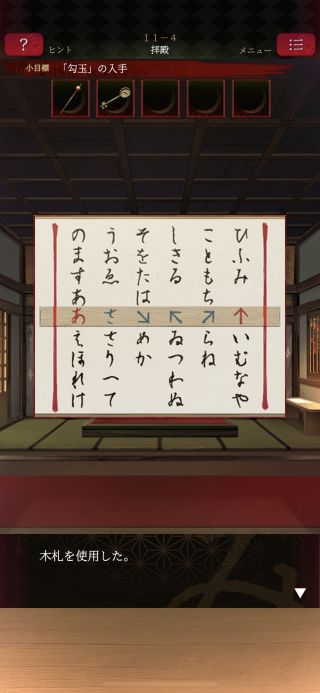 11－4
拝殿
?
ヒント
メニュー
小目標 「勾玉」の入手
ひふみ↑いむなや
こともち↗らね
しきる↖ゐつわぬ
そをたは↘めか
うおゑささりへて
のますああえほれけ
木札を使用した。